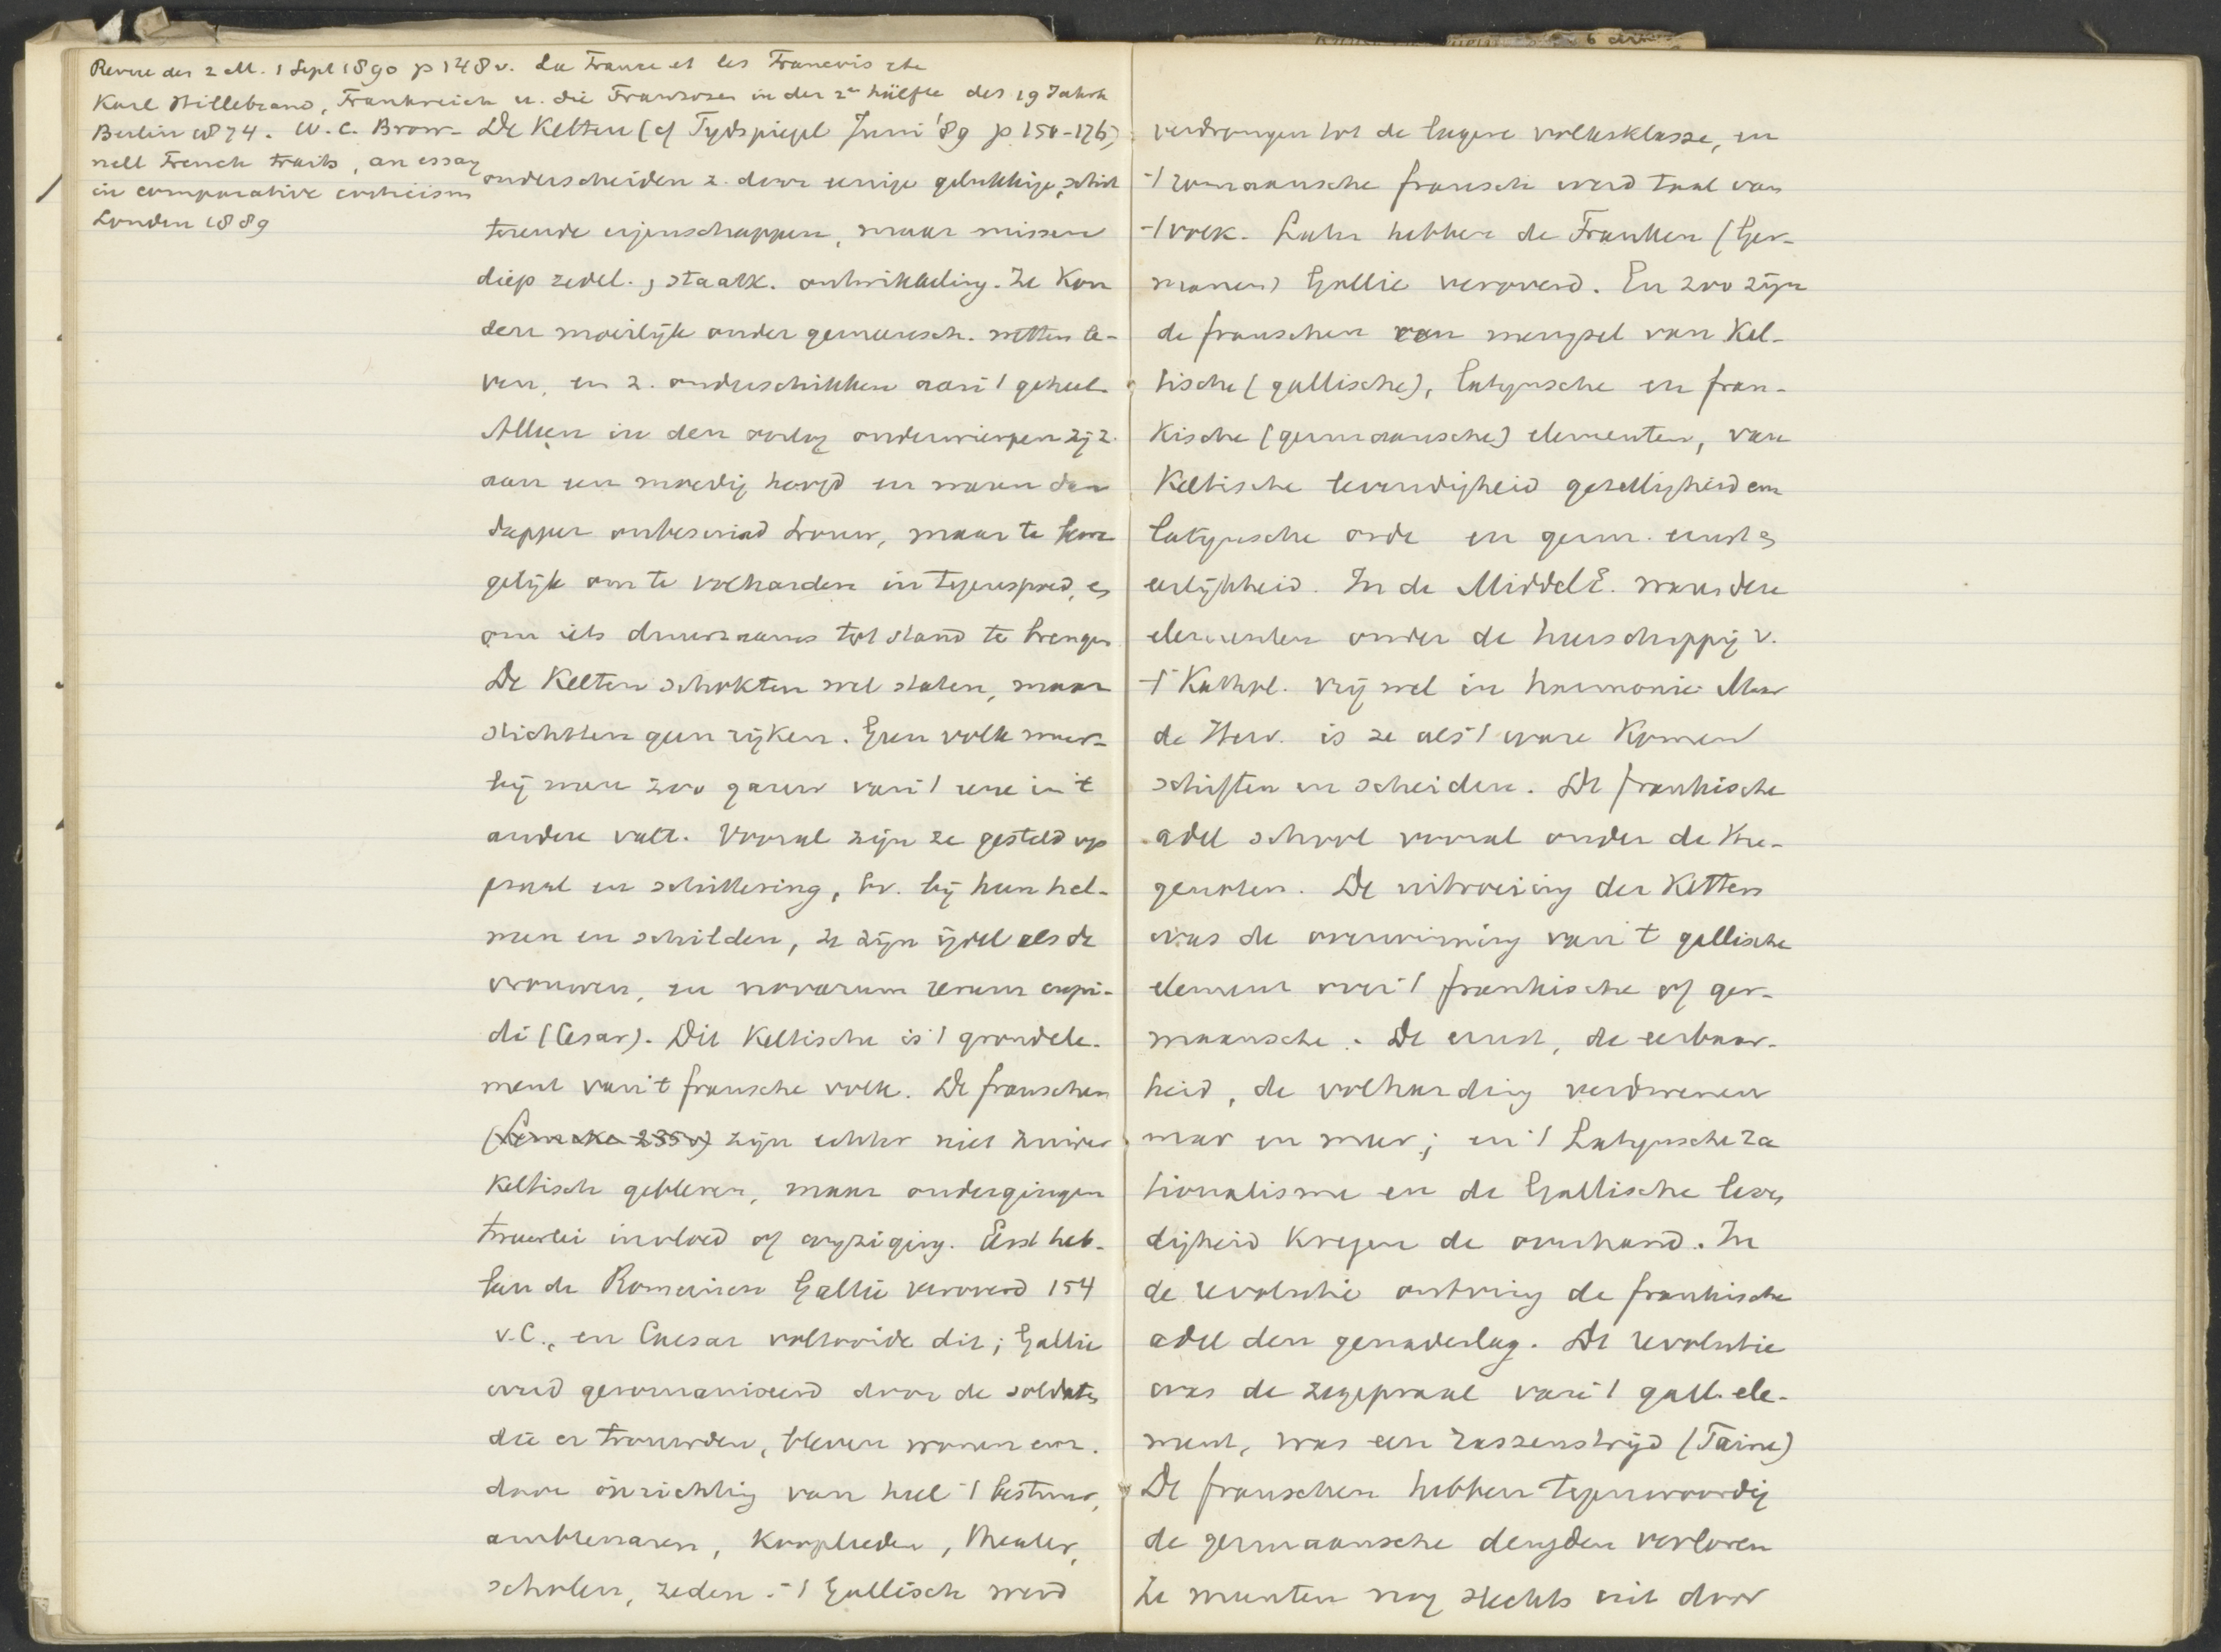 Revue des 2 M. 1 Sept 1890 p 148 v. La France et les Francois
Karl Hillebrand, Frankreich u. die Franzosen in der 2n hälfte des 19 Jahrh
Berlin 1874. W. C. Brow-
nell French traits, an essay
in comparative criticism
London 1889
De Kelten (cf Tydspiegel Juni '89 p. 150-176)
onderscheiden z. door eenige gelukkige, schit
terende eigenschappen, maar missen
diep zedel., staatk. ontwikkeling. Ze kon
den moeilijk onder gemeensch. wetten le-
ven, en z. onderschikken aan 't geheel.
Alleen in den oorlog onderwierpen zij z.
aan een moedig hoofd en waren dan
dapper onbesuisd trouw, maar te
gelijk om te volharden in tegenspoed, en
om iets duurzaams tot stand te brengen
De Kelten schokten wel staten, maar
stichtten geen rijken. Geen volk waar-
bij men zoo gauw van 't eene in 't
andere valt. Vooral zijn ze gesteld op
praal en schittering, bv. bij hun hel-
men en schilden, ze zijn ijdel als de
vrouwen, en novarum rerum cupi-
di (Cesar). Dit Keltische is 't grondele-
ment van 't fransche volk. De franschen
zijn echter niet zuiver
Keltisch gebleven, maar ondergingen
tweeërlei invloed of wijziging. Eerst heb-
ben de Romeinen Gallië veroverd 154
v.C., en Caesar voltooide dit; Gallie
werd geromaniseerd door de soldaten
die er trouwden, bleven wonen enz.
door inrichting van heel 't bestuur,
ambtenaren, kooplieden, theater,
scholen, zeden. 't Gallisch werd
verdrongen tot de lagere volksklasse, en
't romaansche fransch werd taal van
't volk. Later hebben de Franken (Ger-
manen) Gallie veroverd. En zoo zijn
de franschen een mengsel van Kel-
tische (gallische), latijnsche en fran-
kische (germaansche) elementen, van
Keltische levendigheid gezelligheid enz
latijnsche orde en germ. ernst en
eerlijkheid. In de MiddelE. waren deze
elementen onder de heerschappij v.
't Kathol. vrij wel in harmonie. Maar
de Herv. is ze als 't ware komen
schiften en scheiden. De frankische
adel school vooral onder de Hu-
genoten. De uitroeiing der Ketters
was de overwinning van 't gallische
element over 't frankische of ger-
maansche. De ernst, de eerbaar-
heid, de volharding verdwenen
meer en meer; en 't Latijnsche ra
tionalisme en de Gallische leven
digheid kregen de overhand. In
de revolutie ontving de frankische
adel den genadeslag. De revolutie
was de zegepraal van 't gall. ele-
ment, was een rassenstrijd (Taine)
De franschen hebben tegenwoordig
de germaansche deugden verloren
Ze munten nog slechts uit door